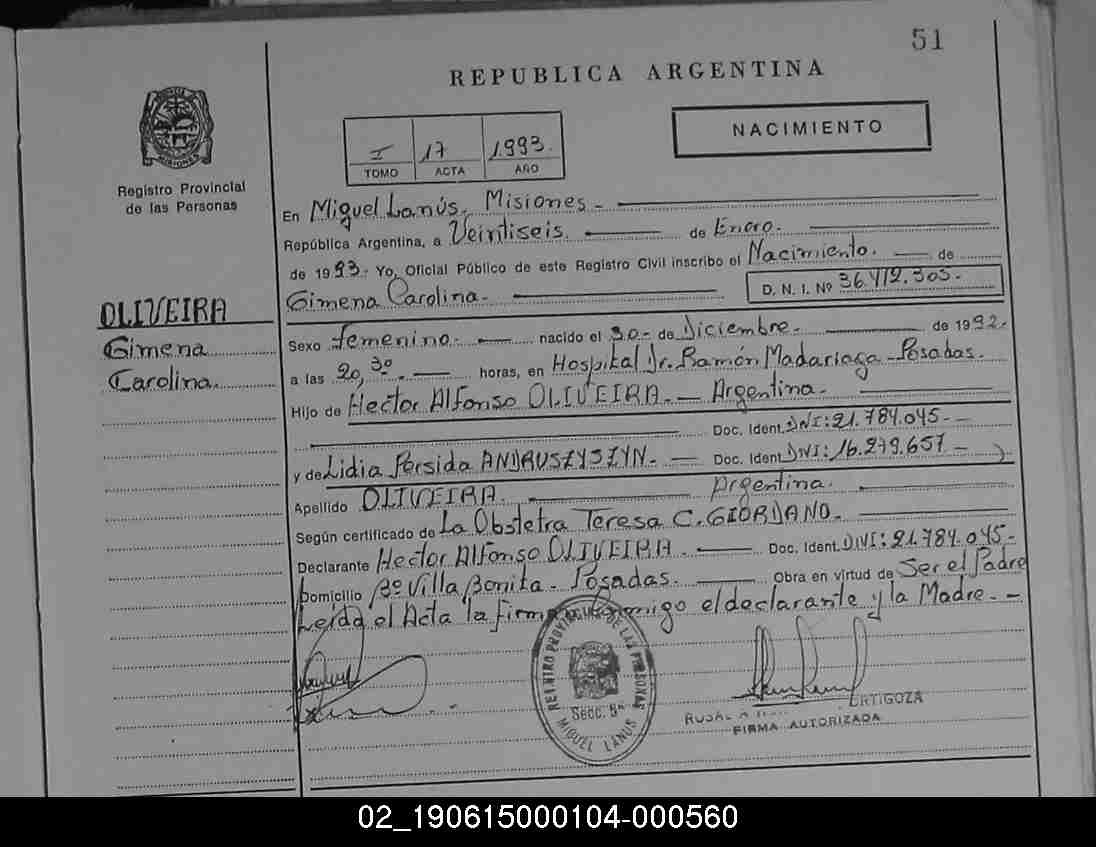 51
REPUBLICA ARGENTINA
NACIMIENTO
I 17 1.993.
TOMO ACTA AÑO
Registro Provincial
de las Personas
En Miguel Lanús, Misiones -
República Argentina, a Veintiseis. de Enero.
de 1993. Yo, Oficial Público de este Registro Civil inscribo el Nacimiento. de
Gimena Carolina. D. N. I. Nº 36.412.303.-
OLIVEIRA
Gimena
Carolina.
Sexo femenino. nacido el 30 - de Diciembre. de 1992.
a las 20,30. horas, en Hospital Dr. Ramón Madariaga - Posadas.
Hijo de Hector Alfonso OLIVEIRA. - Argentina.
Doc. Ident. DNI: 21.784.045 -
y de Lidia Persida ANDRUSZYSZYN. - Doc. Ident. DNI: 16.279.657 -
Apellido OLIVEIRA. Argentina.
Según certificado de La Obstetra Teresa C. GIORDANO.
Declarante Hector Alfonso OLIVEIRA. Doc. Ident. DNI: 21.784.045 -
Domicilio Bº Villa Bonita - Posadas. Obra en virtud de Ser el Padre
Leída el Acta la firma conmigo el declarante y la Madre. -
REGISTRO PROVINCIAL DE LAS PERSONAS
Secc. 5ª
MIGUEL LANUS
ORTIGOZA
FIRMA AUTORIZADA
02_190615000104-000560